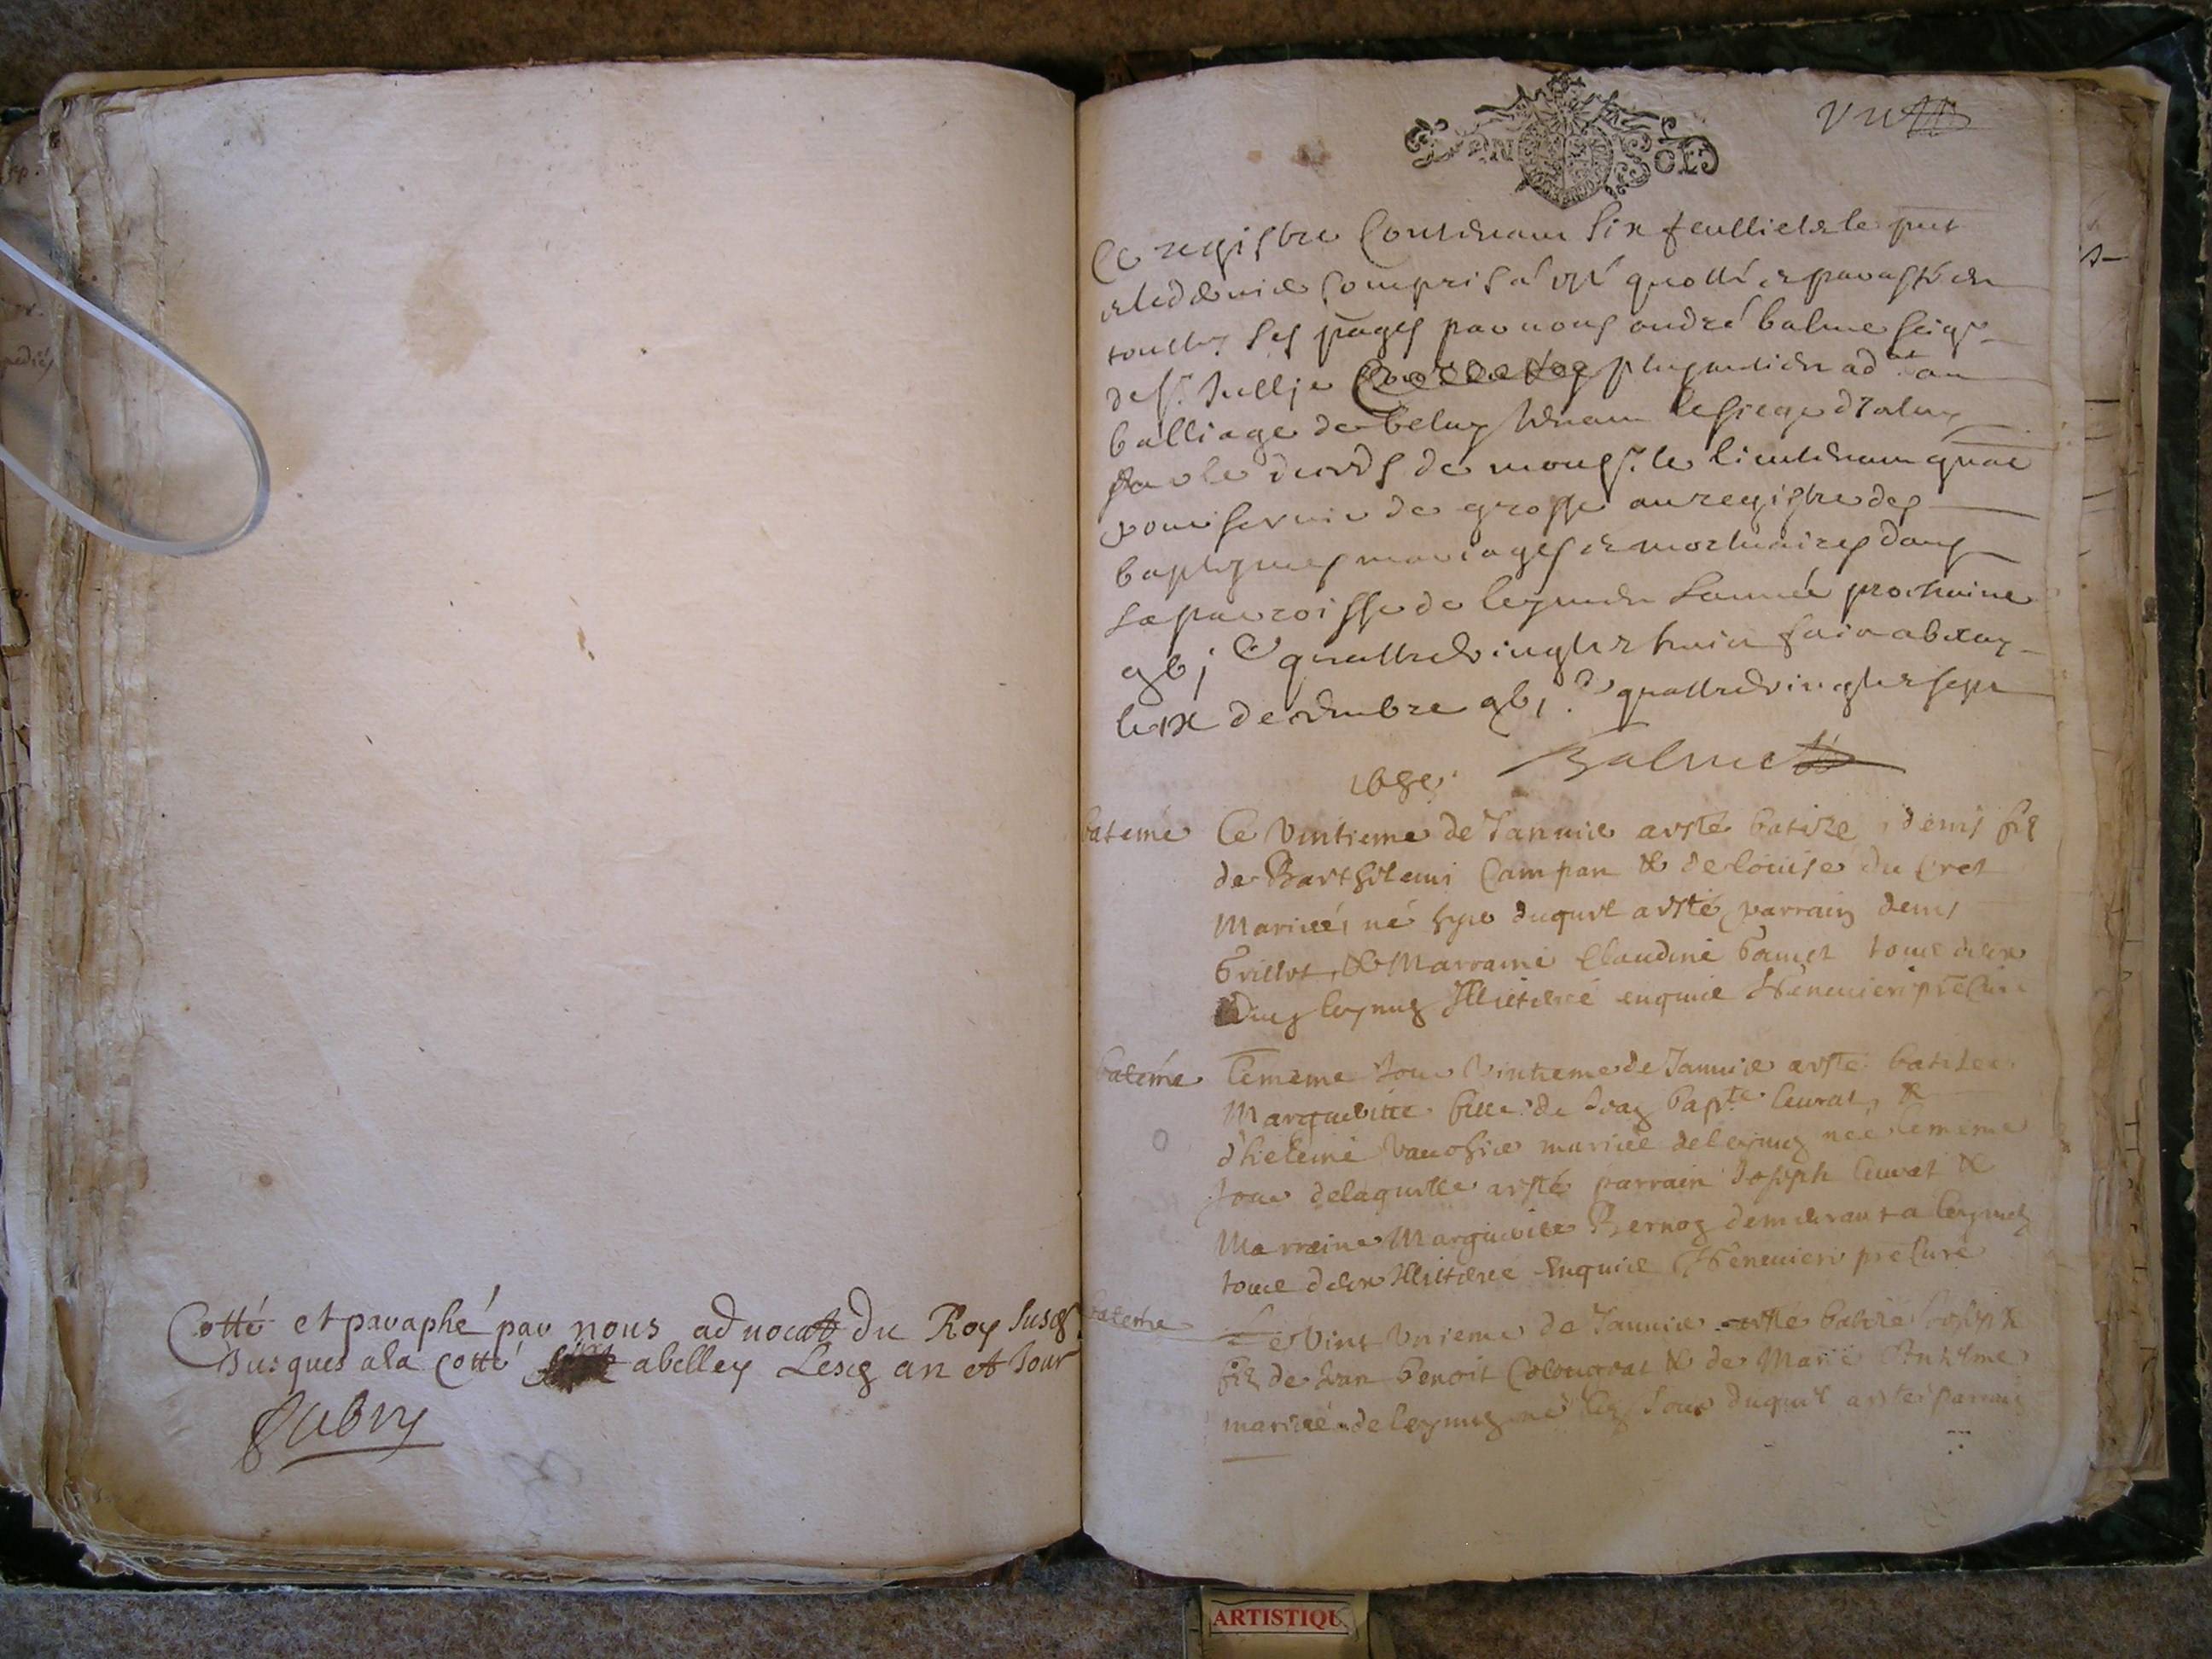 Cotté et paraphé par nous advocat du Roy susd
Jusques a la cotte abelley Lesd an et Jour
Aubry
UN SOL
Ce registre Contenant six feulliets le put
et le dernier compris a esté quotté et paraffé en
touttes ses pages par nous andré balme seigr
de st Jullje plus antien adat au
balliage de beley tenant le siege
par le de monsr. le lieutenant gnal
pour servir de grosse au registre des
baptesmes mariages et mortuaires dans
la parroisse de leymen L'année prochaine
gbj C quattrevingts et huit fait a beley
le ix decembre gbj C quattrevingts et sept
Balme
1688
bateme Ce vintieme de Januier a esté batize denis fils
de Barthelemi Campan & de Louise du Cret
Mariéés né hyer duquel a esté parrain denis
Brillot, & Marraine Claudine Bamet tous deux
illiteré enquis pre Curé
bateme Le meme Jour Vintieme de Januier a esté batisee
Marguerite fille de Jean Bapte Cuvat, &
d'heleine mariée de leymen née le meme
Jour de laquelle a esté parrain Joseph Cuvat &
Marraine Marguerite Bernoz demeurant a leymen
tous deux Illiteré Enquis pre Curé
bateme Le Vint Unieme de Januier a esté batisé Joseph
fils de Jean Benoit & de Marie Anthelme
mariéé de leymen né led Jour duquel a esté parrain
ARTISTIQU